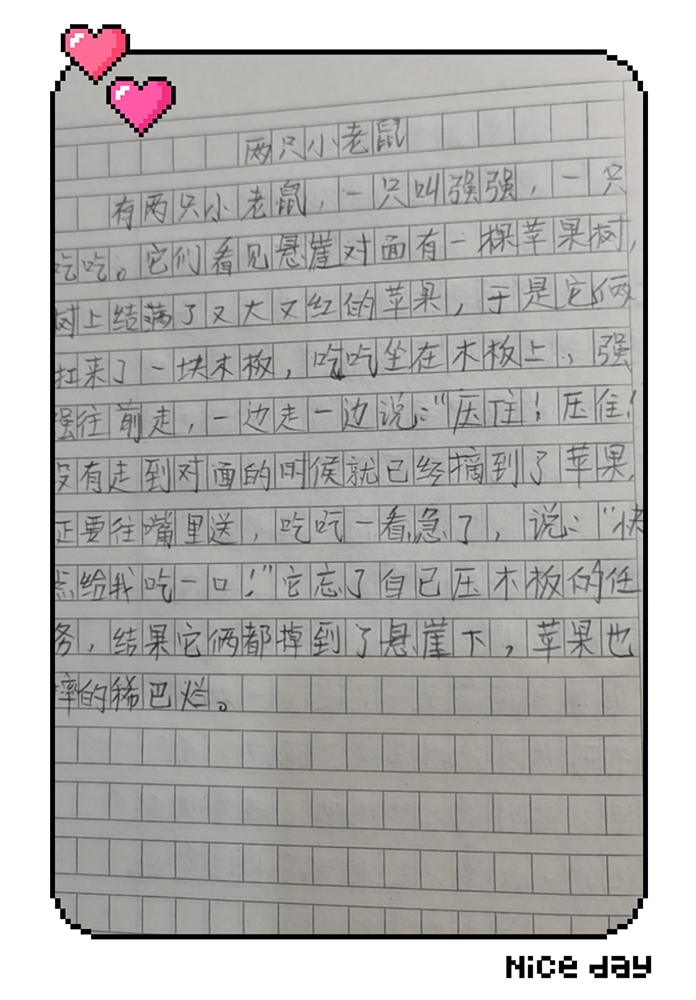 两只小老鼠
有两只小老鼠，一只叫强强，一只
吃吃。它们看见悬崖对面有一棵苹果树，
树上结满了又大又红的苹果，于是它俩
扛来了一块木板，吃吃坐在木板上，强
强往前走，一边走一边说：“压住！压住！
没有走到对面的时侯就已经摘到了苹果，
正要往嘴里送，吃吃一看急了，说：“快
点给我吃一口！”它忘了自己压木板的任
务，结果它俩都掉到了悬崖下，苹果也
摔的稀巴烂。
Nice day